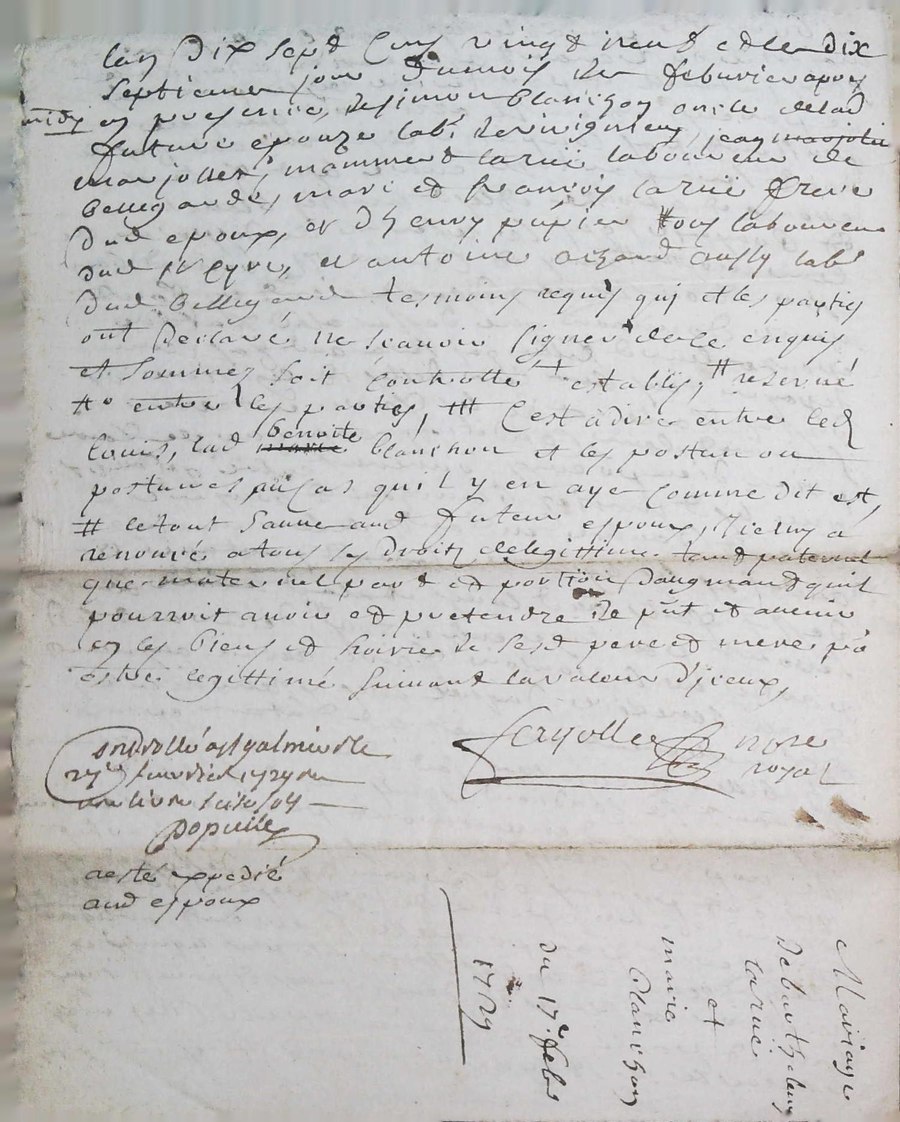 lan dix sept cens vingt neuf et le dix
septieme jour du mois de febvrier apres
midy en presence, de simon blanchon oncle de lad
future epouze lab.r de vivigneu, jean marjolin
marjollet, mamment larue laboureur de
bellegarde, mari et francois larue frere
dud epoux, et d henry papier tous laboureur
dud st Cyre, et antoine ozard aussy lab.r
dud bellegard tesmoins requis qui et les parties
ont declaré ne scavoir signer de ce enquis
et sommez soit controllé + establis, # reservé
entre les parties, ### c est a dire entre led
louis, lad benoite marie blanchon et les postume ou
postumes au cas qu il y en aye comme dit est,
# le tout sauve aud futeur espoux, n
renoncé a tous ses droits de legittime tant paternel
que maternel part et portion d augmant quil
pourroit avoir et pretendre de pnt et avenir
en les biens et hoirie de sesd pere et mere, po
estre legittimé suivant la valeur d iceux,
nore
royal
controllé a st galmier le
fevrier 1729 reçu
une livre
Populle
a esté expedié
aud espoux
Mariage
de barthelemy
larue
et
marie
blanchon
du 17e feb.r
1729